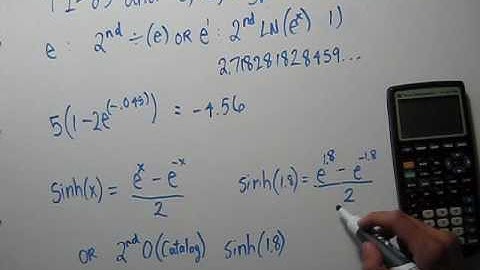 e: 2nd ÷(e) OR e¹: 2nd LN(eˣ) 1)
2.718281828459...
5(1-2e^(-.045)) = -4.56
sinh(x) = (eˣ - e⁻ˣ)/2 sinh(1.8) = (e^1.8 - e^-1.8)/2
OR 2nd 0(Catalog) sinh(1.8)